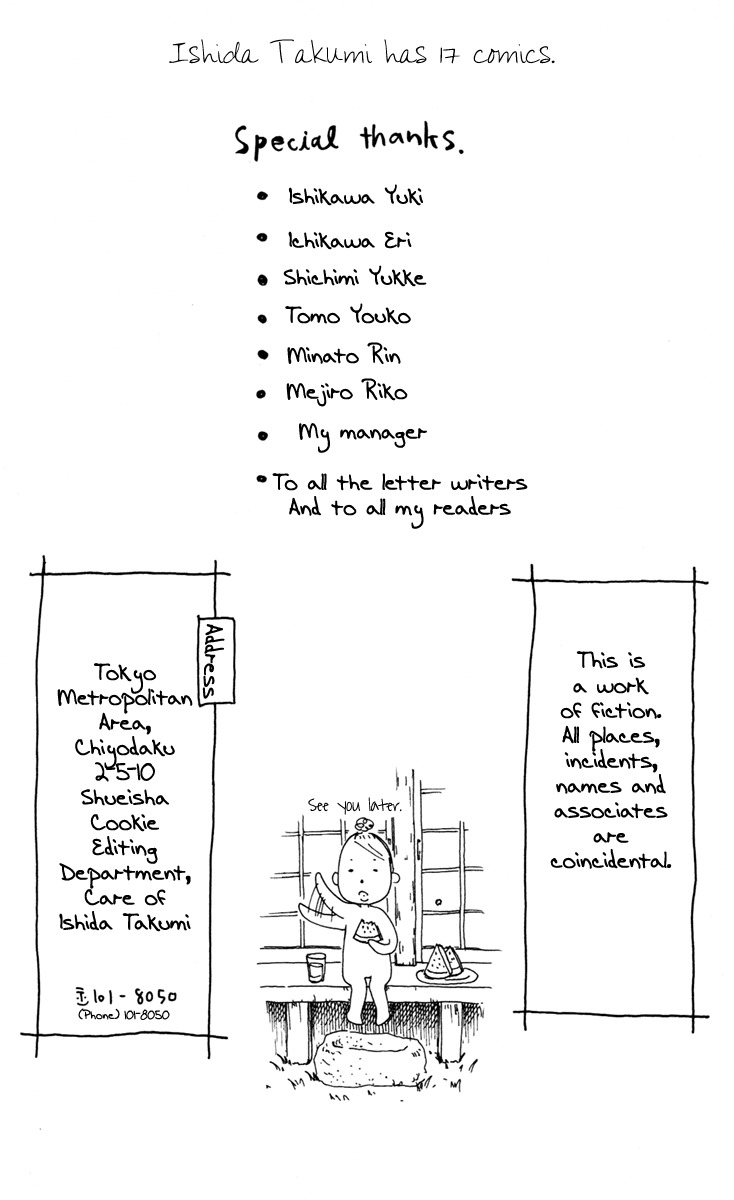 Ishida Takumi has 17 comics.
Special thanks.
• Ishikawa Yuki
• Ichikawa Eri
• Shichimi Yukke
• Tomo Youko
• Minato Rin
• Mejiro Riko
• My manager
• To all the letter writers
And to all my readers
Address
Tokyo
Metropolitan
Area,
Chiyodaku
2-5-10
Shueisha
Cookie
Editing
Department,
Care of
Ishida Takumi
〒101-8050
(Phone) 101-8050
See you later.
This is
a work
of fiction.
All places,
incidents,
names and
associates
are
coincidental.